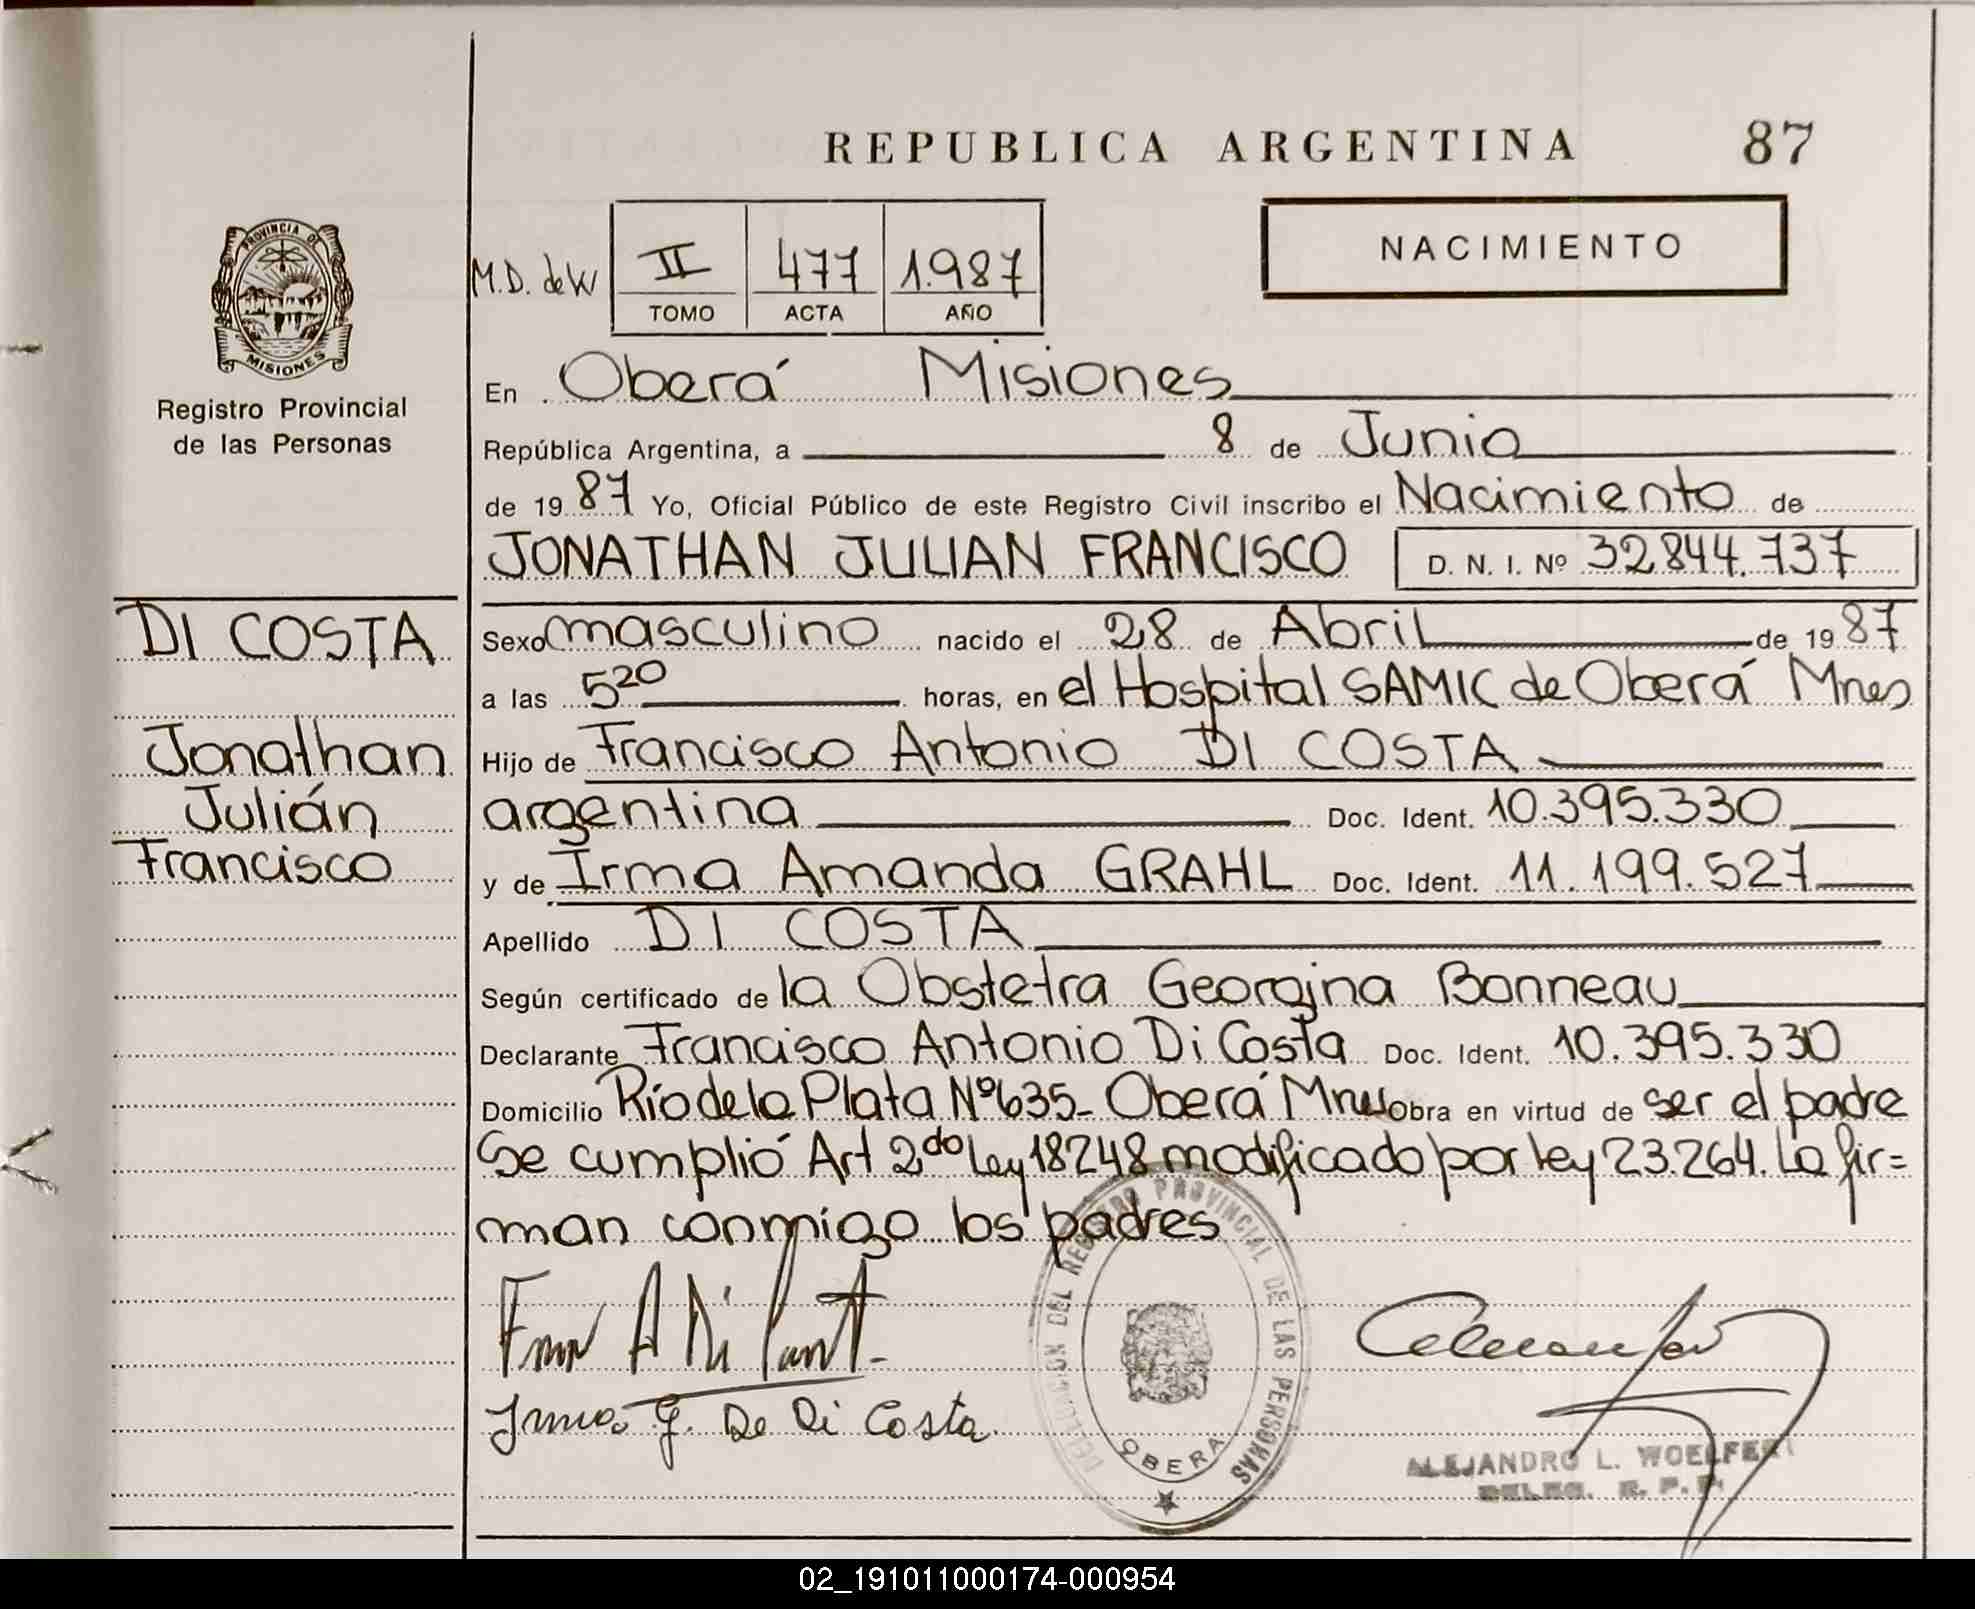 REPUBLICA ARGENTINA 87
NACIMIENTO
M.D. de W II 477 1.987
TOMO ACTA AÑO
PROVINCIA DE
MISIONES
Registro Provincial
de las Personas
En Oberá Misiones
República Argentina, a 8 de Junio
de 1987 Yo, Oficial Público de este Registro Civil inscribo el Nacimiento de
JONATHAN JULIAN FRANCISCO D. N. I. Nº 32.844.737
DI COSTA
Jonathan
Julián
Francisco
Sexo masculino nacido el 28 de Abril de 1987
a las 5 20 horas, en el Hospital SAMIC de Oberá Mnes
Hijo de Francisco Antonio DI COSTA
argentina Doc. Ident. 10.395.330
y de Irma Amanda GRAHL Doc. Ident. 11.199.527
Apellido DI COSTA
Según certificado de la Obstetra Georgina Bonneau
Declarante Francisco Antonio Di Costa Doc. Ident. 10.395.330
Domicilio Río de la Plata Nº 635- Oberá Mnes Obra en virtud de ser el padre
Se cumplió Art 2do Ley 18248 modificado por ley 23.264. La fir=
man conmigo los padres
Irma G. De Di Costa
DELEGACION DEL REGISTRO PROVINCIAL DE LAS PERSONAS
OBERA
ALEJANDRO L. WOELFERT
DELEG. R. P. P.
02_191011000174-000954